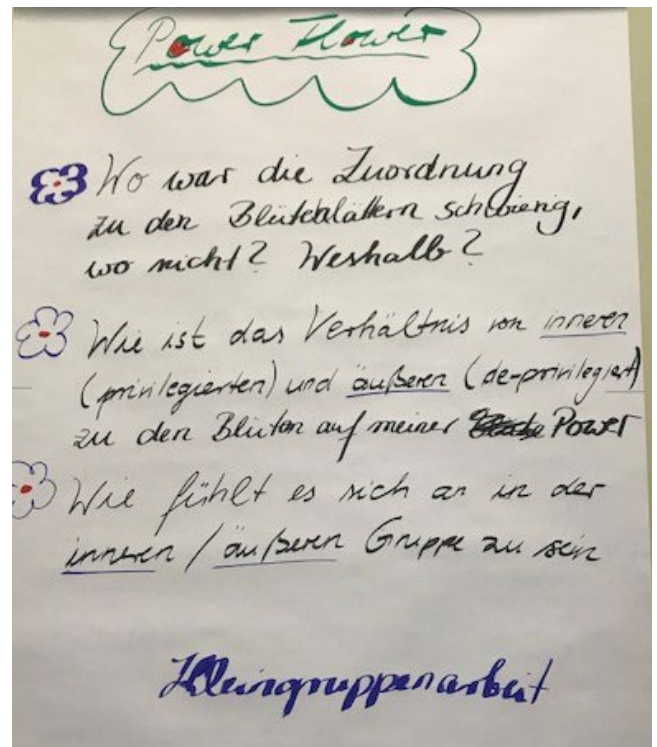 Power Flower
Wo war die Zuordnung
zu den Blütenblättern schwierig,
wo nicht? Weshalb?
Wie ist das Verhältnis von inneren
(privilegierten) und äußeren (de-privilegiert)
zu den Blüten auf meiner Power
Wie fühlt es sich an in der
inneren / äußeren Gruppe zu sein
Kleingruppenarbeit